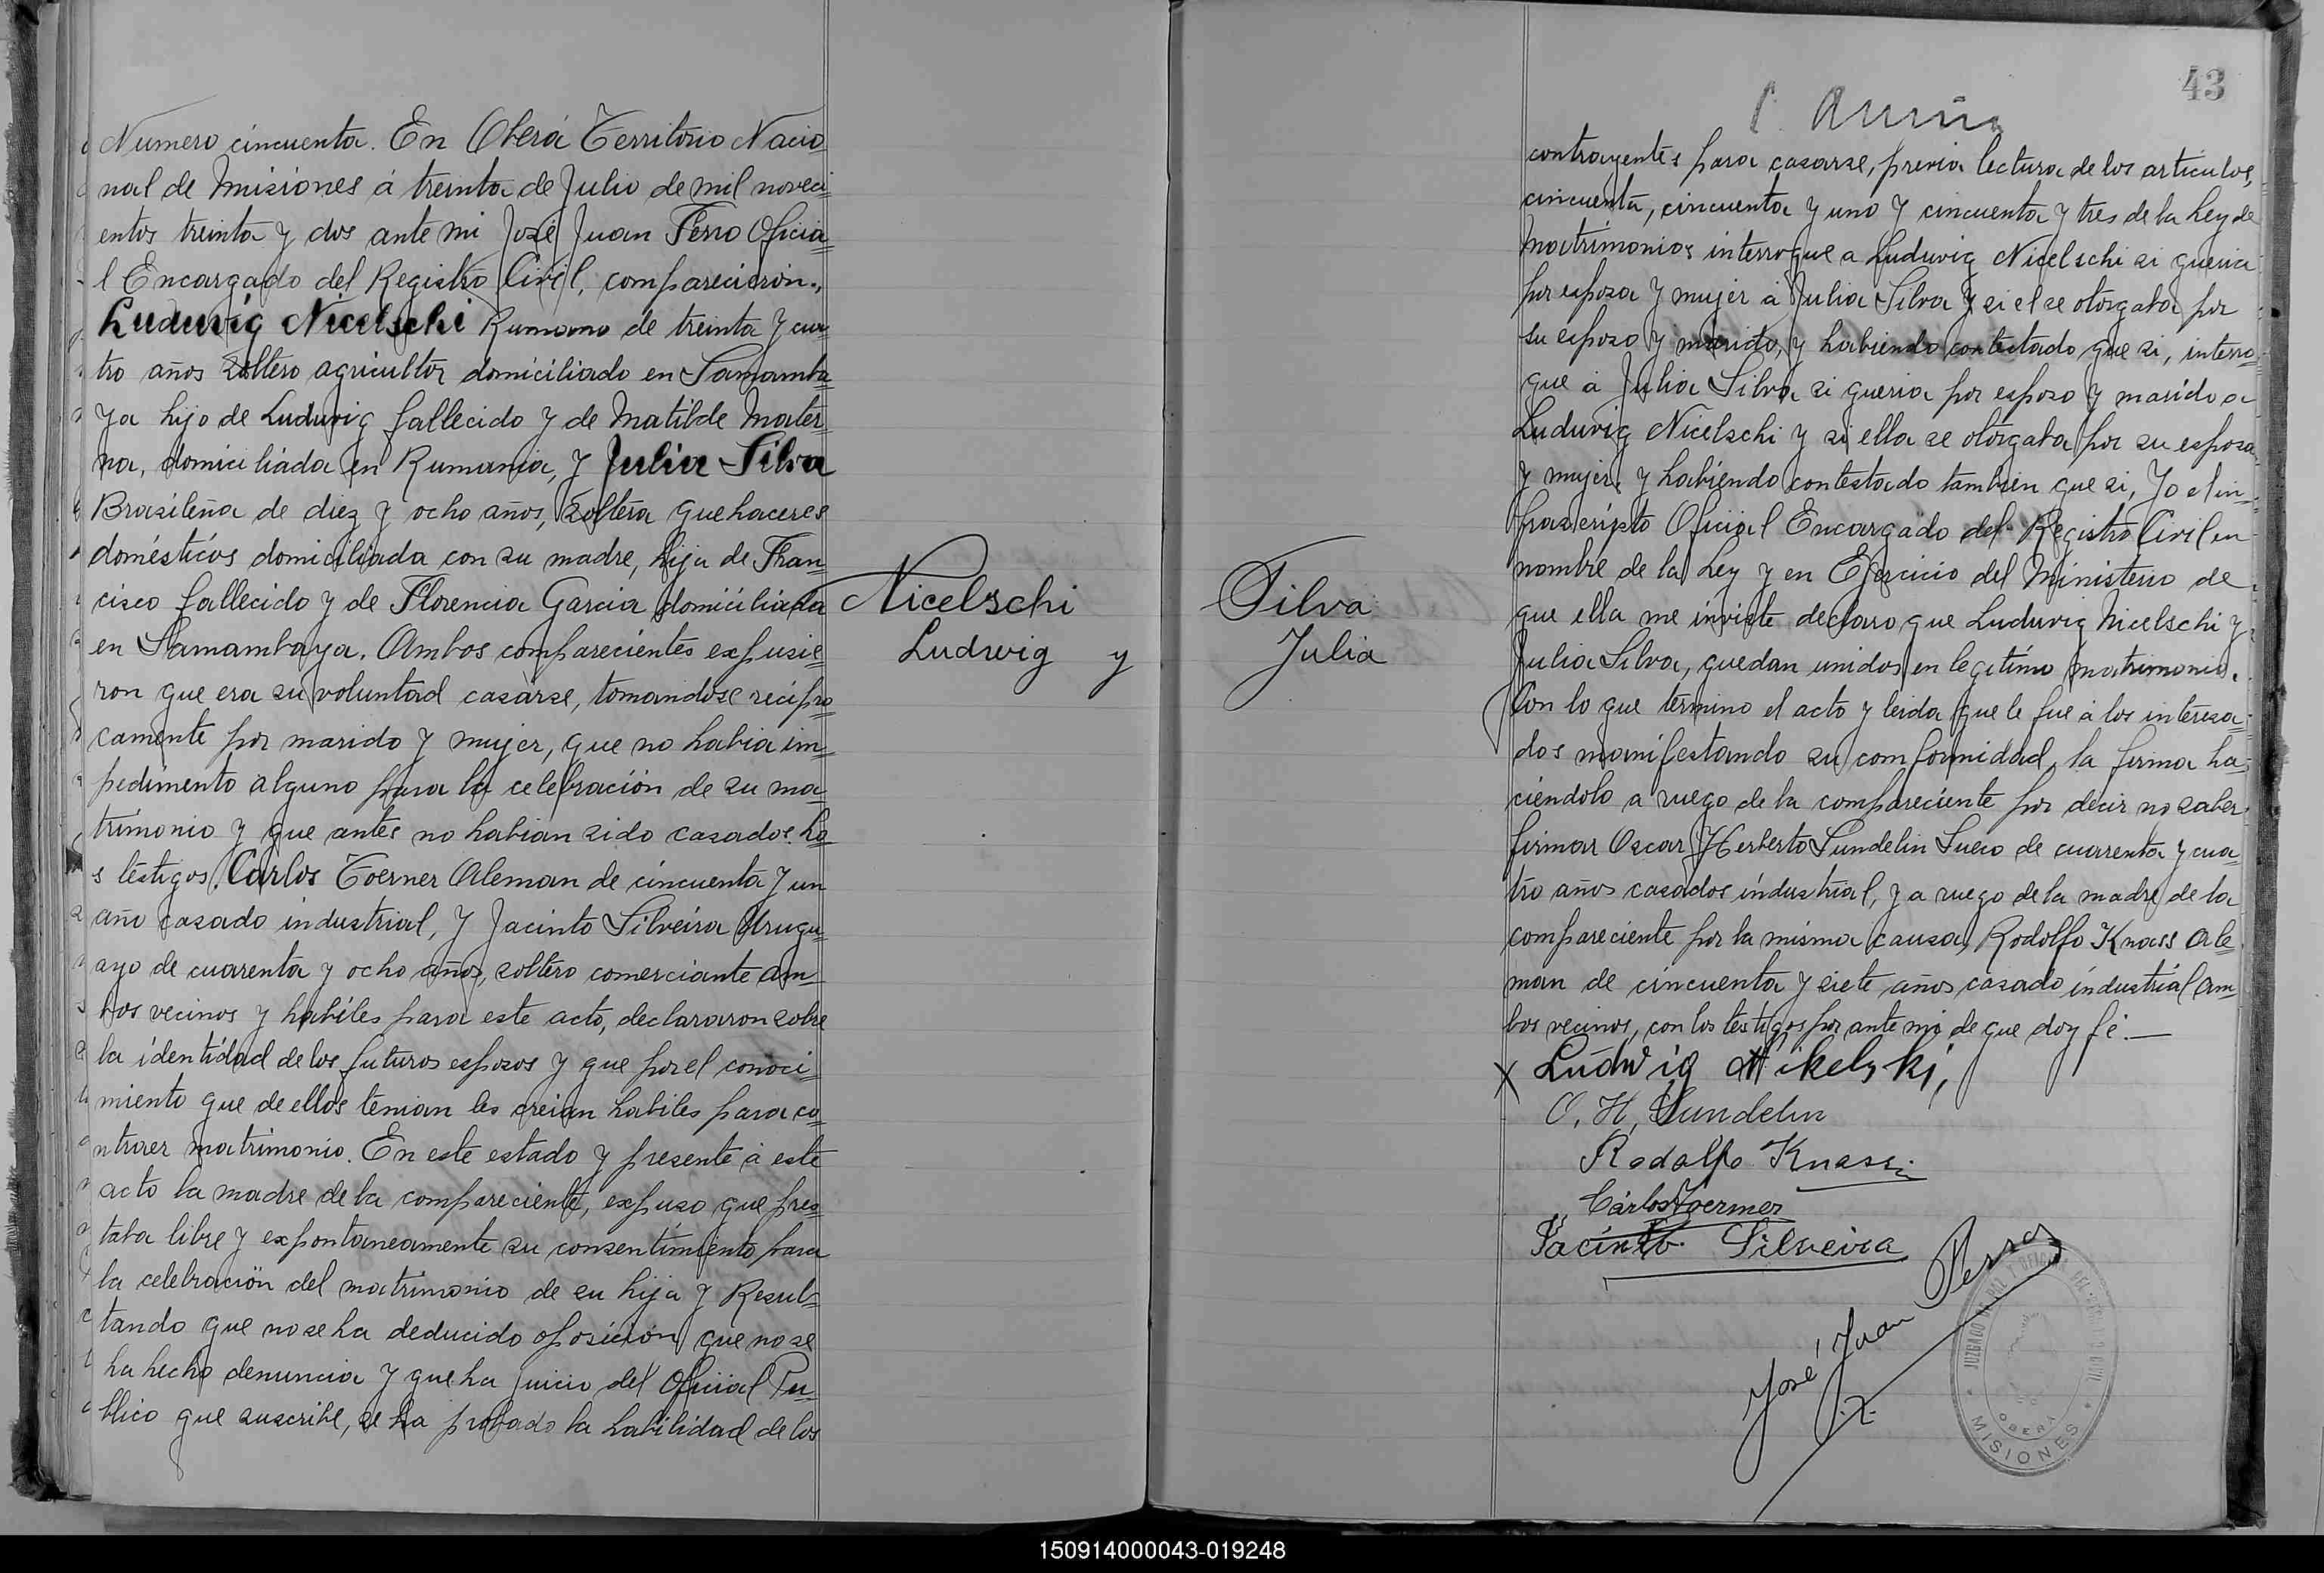 Numero cincuenta. En Oberá Territorio Nacio=
nal de Misiones á treinta de Julio de mil noveci=
entos treinta y dos ante mi José Juan Ferro Oficia=
l Encargado del Registro Civil, comparecieron.,
Luduvig Nicelschi Rumano de treinta y cua=
tro años soltero agricultor domiciliado en Samamba=
ya hijo de Luduvig fallecido y de Matilde Mater=
na, domiciliada en Rumania, y Julia Silva
Brasileña de diez y ocho años, soltera quehaceres
domésticos domiciliada con su madre, hija de Fran=
cisco fallecido y de Florencia Garcia domiciliada
en Samambaya. Ambos comparecientes expusie=
ron que era su voluntad casarse, tomandose recipro=
camente por marido y mujer, que no habia im=
pedimento alguno para la celebración de su ma=
trimonio y que antes no habian sido casados. Lo=
s testigos, Carlos Toerner Aleman de cincuenta y un
año casado industrial, y Jacinto Silveira Urugu=
ayo de cuarenta y ocho años, soltero comerciante am=
bos vecinos y habiles para este acto, declararon sobre
la identidad de los futuros esposos y que por el conoci=
miento que de ellos tenian les creian habiles para co=
ntraer matrimonio. En este estado y presente á este
acto la madre de la compareciente, expuso que pres=
taba libre y expontaneamente su consentimiento para
la celebración del matrimonio de su hija y Resul=
tando que no se ha deducido oposición que no se
ha hecho denuncia y que ha juicio del Oficial Pu=
blico que suscribe, se ha probado la habilidad de los
Nicelschi
Ludwig y
Silva
Julia
43
contrayentes para casarse, previa lectura de los articulos,
cincuenta, cincuenta y uno y cincuenta y tres de la Ley de
Matrimonios interrogue a Luduvig Nicelschi si queria
por esposa y mujer á Julia Silva y si el se otorgaba por
su esposo y marido, y habiendo contestado que si, interro=
gue á Julia Silva si queria por esposo y marido a
Luduvig Nicelschi y si ella se otorgaba por su esposa
y mujer, y habiendo contestado tambien que si, Yo el in=
frascripto Oficial Encargado del Registro Civil en
nombre de la Ley y en Ejercicio del Ministerio de
que ella me inviste declaro que Luduvig Nicelschi y
Julia Silva, quedan unidos en legitimo matrimonio.
Con lo que termino el acto y leida que le fue á los interesa=
dos manifestando su comformidad, la firma ha=
ciendolo a ruego de la compareciente por decir no saber
firmar Oscar Herberto Sundelin Sueco de cuarenta y cua=
tro años casados industrial, y a ruego de la madre de la
compareciente por la misma causa, Rodolfo Knass Ale=
man de cincuenta y siete años casado industrial am=
bos vecinos, con los testigos por ante mi de que doy fé.—
X Ludwig Nikelski,
O. H. Sundelin
Rodolfo Knass
Carlos Toerner
Jacinto Silveira
José Juan Ferro
OBERA
MISIONES
150914000043-019248